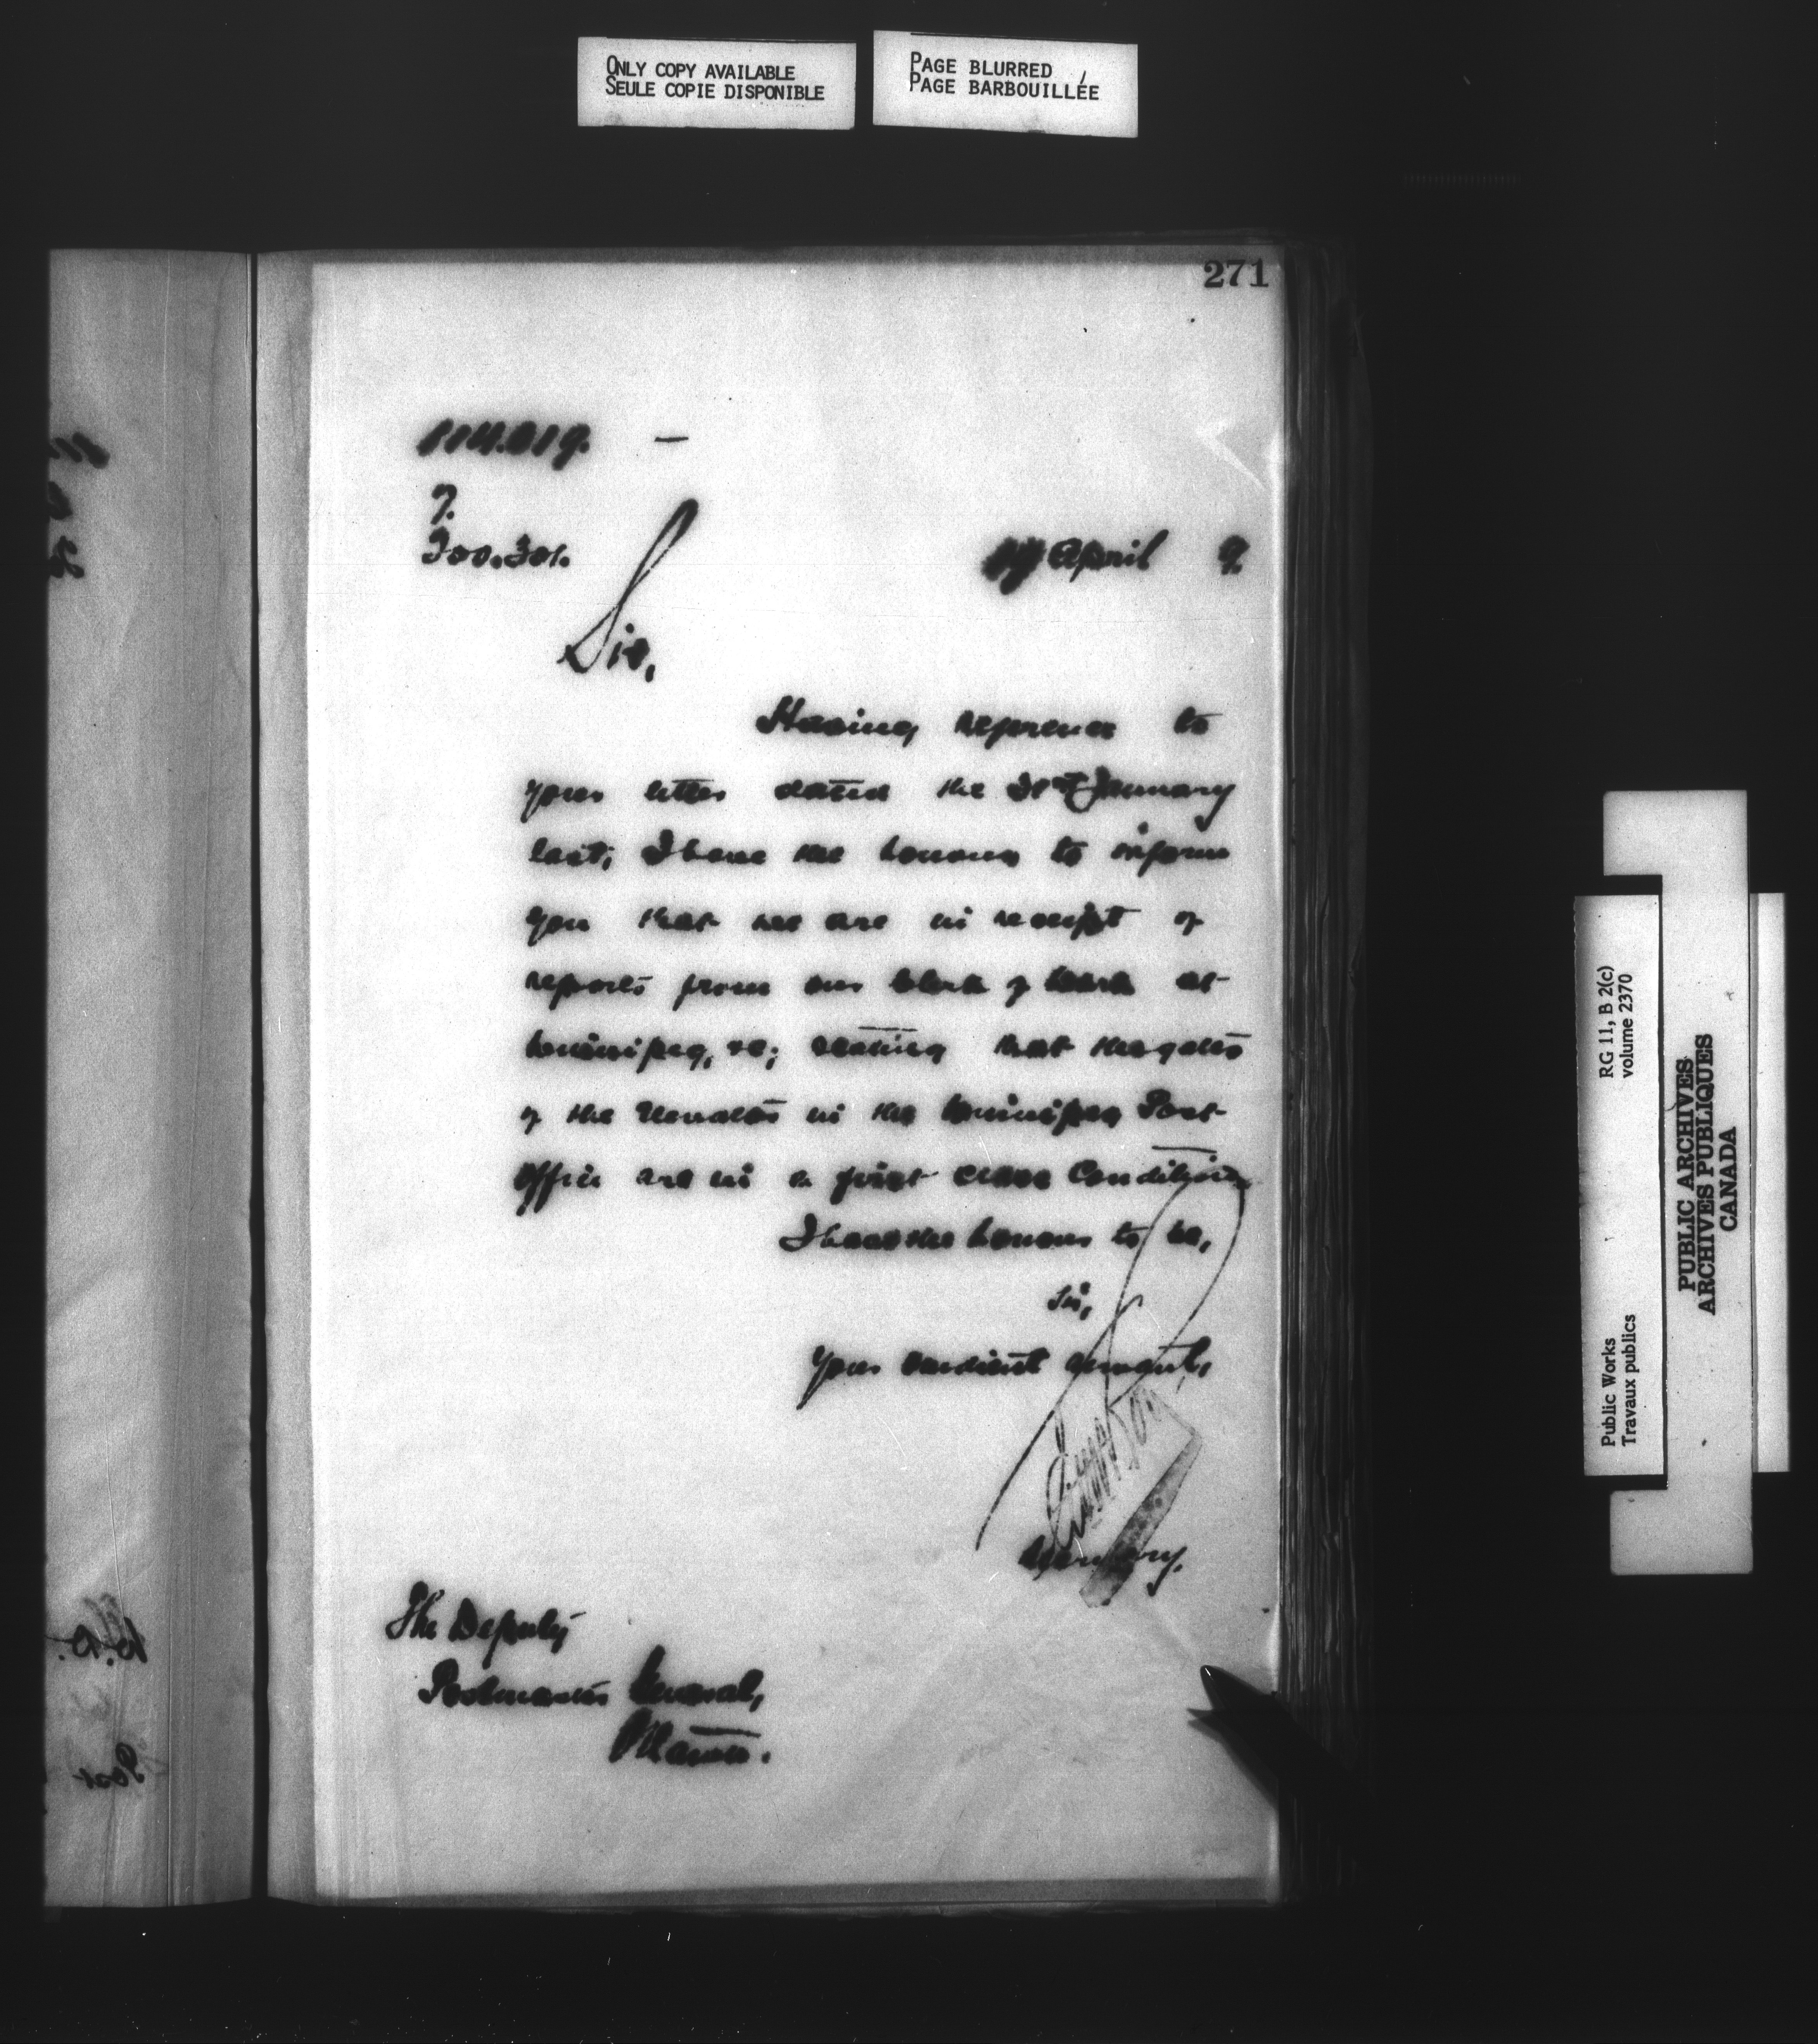 ONLY COPY AVAILABLE
SEULE COPIE DISPONIBLE
PAGE BLURRED
PAGE BARBOUILLÉE
271
114.019.
7.
300.301.
April 9.
Sir,
Having reference to
your letter dated the 31st January
last, I have the honour to inform
you that we are in receipt of
reports from our Clerk of Work at
Winnipeg, stating that the
of the in the Winnipeg Post
Office are in a first class Condition
I have the honour to be,
Sir,
Your obedient servant,
Secretary.
The Deputy
Postmaster General,
Ottawa.
RG 11, B 2(c)
volume 2370
Public Works
Travaux publics
PUBLIC ARCHIVES
ARCHIVES PUBLIQUES
CANADA